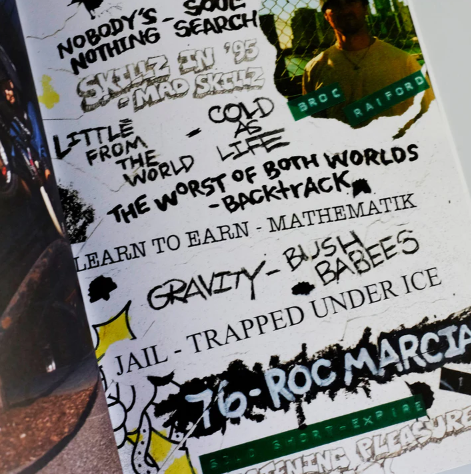 NOBODY'S - SOUL
NOTHING SEARCH
SKILLZ IN '95
- MAD SKILLZ
BROC
RAIFORD
LITTLE - COLD
FROM AS
THE LIFE
WORLD
THE WORST OF BOTH WORLDS
- BACKTRACK
LEARN TO EARN - MATHEMATIK
GRAVITY - BUSH
BABEES
JAIL - TRAPPED UNDER ICE
76 - ROC MARCIA
SHORT-EXPIRE
PLEASURE